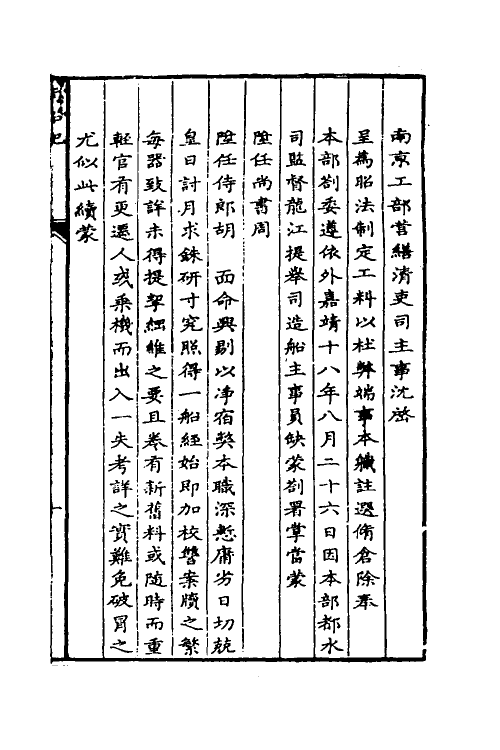 南京工部營繕清吏司主事沈啓
呈為昭法制定工料以杜弊端事本職註選脩倉除奉
本部劄委遵依外嘉靖十八年八月二十六日因本部都水
司監督龍江提舉司造船主事員缺蒙劄署掌當蒙
陞任尚書周
陞任侍郎胡　面命興剔以凈宿獘本職深慙庸劣日切兢
皇日討月求銖研寸究照得一船經始即加校讐案牘之繁
每器致詳未得提挈綱維之要且卷有新舊料或隨時而重
輕官有更遷人或乘機而出入一失考詳之實難免破冐之
尤似此續蒙